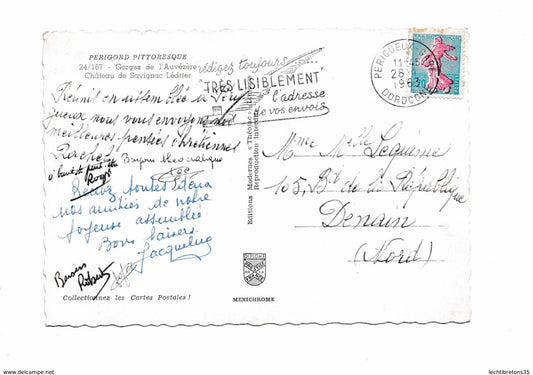 PERIGORD PITTORESQUE
24/187 - Gorges de l'Auvézère
Château de Savignac Lédrier
rédigez toujours...
"TRÈS LISIBLEMENT"
l'adresse
de vos envois
PERIGUEUX GARE
11H45
28-
1963
DORDOGNE
0,20
Réunit en assemblée à
joyeux nous vous envoyons nos
meilleures pensées chrétiennes
Rachel Bonjour
à bientôt peut être
Roger
Recevez toutes deux
nos amitiés de notre
joyeuse assemblée
Bons baisers.
Jacqueline
Baisers
Robert
Editions Modernes « Théojac »
Reproduction interdite
Mme Melle Lequime
105, Bd de la République
Denain
(Nord)
Collectionnez les Cartes Postales !
MEXICHROME
https://www.delcampe.net
lechtibretons35